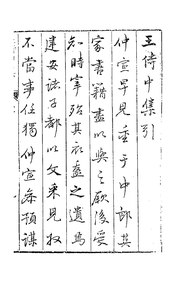 王侍中集引
仲宣早見重于中郎其
家書籍盡以與之厥後受
知時宰殆其衣盋之遺焉
建安諸子都以文采見收
不當事任獨仲宣參預謀